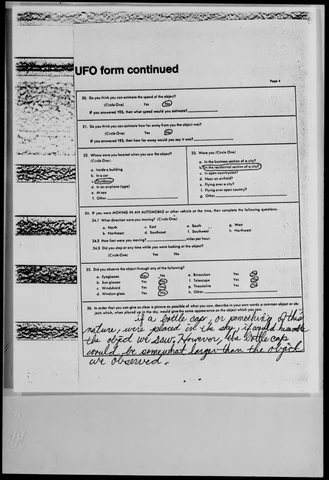 UFO form continued
Page 4
20. Do you think you can estimate the speed of the object?
(Circle One) Yes No
If you answered YES, then what speed would you estimate?
21. Do you think you can estimate how far away from you the object was?
(Circle One) Yes No
If you answered YES, then how far away would you say it was?
22. Where were you located when you saw the object?
(Circle One):
a. Inside a building
b. In a car
c. Outdoors
d. In an airplane (type)
e. At sea
f. Other
23. Were you (Circle One)
a. In the business section of a city?
b. In the residential section of a city?
c. In open countryside?
d. Near an airfield?
e. Flying over a city?
f. Flying over open country?
g. Other
24. If you were MOVING IN AN AUTOMOBILE or other vehicle at the time, then complete the following questions:
24.1 What direction were you moving? (Circle One)
a. North c. East e. South g. West
b. Northeast d. Southeast f. Southwest h. Northwest
24.2 How fast were you moving? miles per hour.
24.3 Did you stop at any time while you were looking at the object?
(Circle One) Yes No
25. Did you observe the object through any of the following?
a. Eyeglasses Yes No e. Binoculars Yes No
b. Sun glasses Yes No f. Telescope Yes No
c. Windshield Yes No g. Theodolite Yes No
d. Window glass Yes No h. Other
26. In order that you can give as clear a picture as possible of what you saw, describe in your own words a common object or objects which, when placed up in the sky, would give the same appearance as the object which you saw.
if a bottle cap, or something of this
nature, were placed in the sky, it would resemble
the object we saw. However, the bottle cap
would be somewhat larger than the object
we observed.